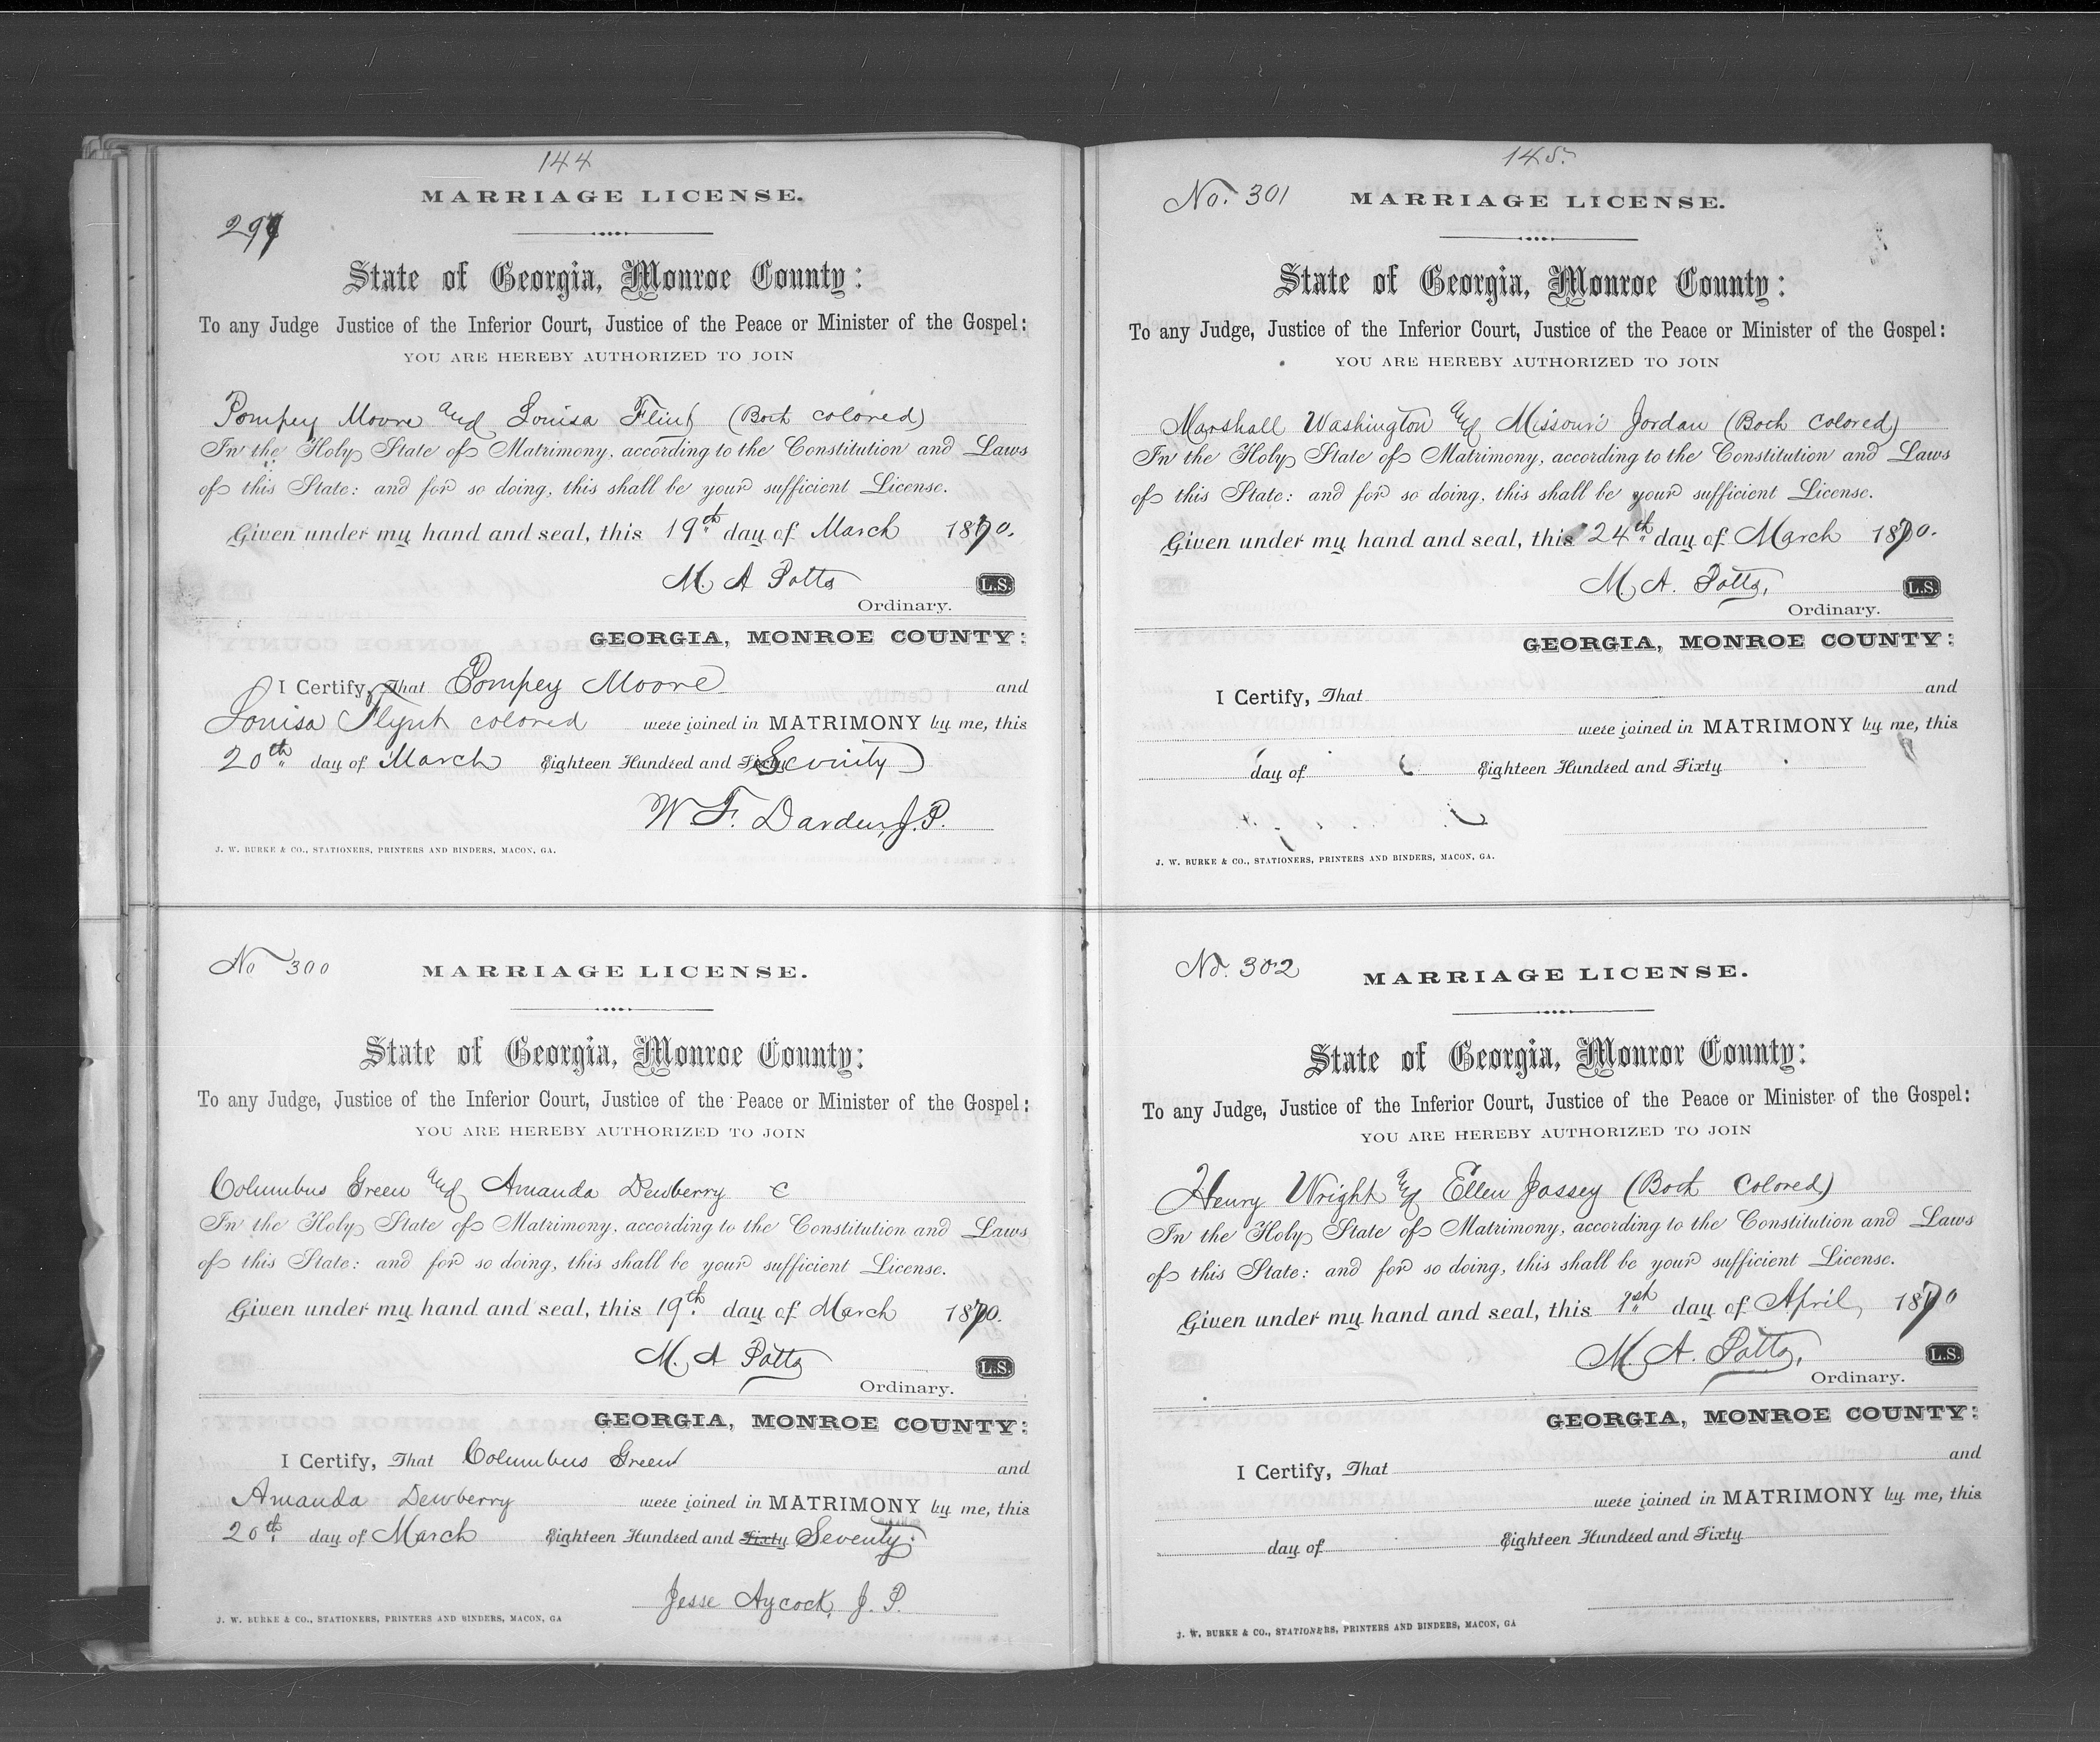 144
MARRIAGE LICENSE.
State of Georgia, Monroe County:
To any Judge Justice of the Inferior Court, Justice of the Peace or Minister of the Gospel:
YOU ARE HEREBY AUTHORIZED TO JOIN
Pompey Moore and Louisa Flint (Both colored)
In the Holy State of Matrimony, according to the Constitution and Laws
of this State: and for so doing, this shall be your sufficient License.
Given under my hand and seal, this 19th day of March 1870.
M. A Potts L.S.
Ordinary.
GEORGIA, MONROE COUNTY:
I Certify, That Pompey Moore and
Louisa Flynt colored were joined in MATRIMONY by me, this
20th day of March Eighteen Hundred and Sixty Sevinty
W F. Darden, J. P.
J. W. BURKE & CO., STATIONERS, PRINTERS AND BINDERS, MACON, GA.
No 300
MARRIAGE LICENSE.
State of Georgia, Monroe County:
To any Judge, Justice of the Inferior Court, Justice of the Peace or Minister of the Gospel:
YOU ARE HEREBY AUTHORIZED TO JOIN
Columbus Green and Amanda Dewberry c
In the Holy State of Matrimony, according to the Constitution and Laws
of this State: and for so doing, this shall be your sufficient License.
Given under my hand and seal, this 19th day of March 1870.
M. A Potts L.S.
Ordinary.
GEORGIA, MONROE COUNTY:
I Certify, That Columbus Green and
Amanda Dewberry were joined in MATRIMONY by me, this
20th day of March Eighteen Hundred and Sixty Seventy.
Jesse Aycock, J. P.
J. W. BURKE & CO., STATIONERS, PRINTERS AND BINDERS, MACON, GA
145
No. 301
MARRIAGE LICENSE.
State of Georgia, Monroe County:
To any Judge, Justice of the Inferior Court, Justice of the Peace or Minister of the Gospel:
YOU ARE HEREBY AUTHORIZED TO JOIN
Marshall Washington and Missouri Jordan (Both colored)
In the Holy State of Matrimony, according to the Constitution and Laws
of this State: and for so doing, this shall be your sufficient License.
Given under my hand and seal, this 24th day of March 1870.
M. A. Potts, L.S.
Ordinary.
GEORGIA, MONROE COUNTY:
I Certify, That and
were joined in MATRIMONY by me, this
day of Eighteen Hundred and Sixty
J. W. BURKE & CO., STATIONERS, PRINTERS AND BINDERS, MACON, GA.
No. 302
MARRIAGE LICENSE.
State of Georgia, Monror County:
To any Judge, Justice of the Inferior Court, Justice of the Peace or Minister of the Gospel:
YOU ARE HEREBY AUTHORIZED TO JOIN
Henry Wright and Ellen Jossey (Both Colored)
In the Holy State of Matrimony, according to the Constitution and Laws
of this State: and for so doing, this shall be your sufficient License.
Given under my hand and seal, this 1st day of April, 1870
M. A. Potts, L.S.
Ordinary.
GEORGIA, MONROE COUNTY:
I Certify, That and
were joined in MATRIMONY by me, this
day of Eighteen Hundred and Sixty
J. W. BURKE & CO., STATIONERS, PRINTERS AND BINDERS, MACON, GA